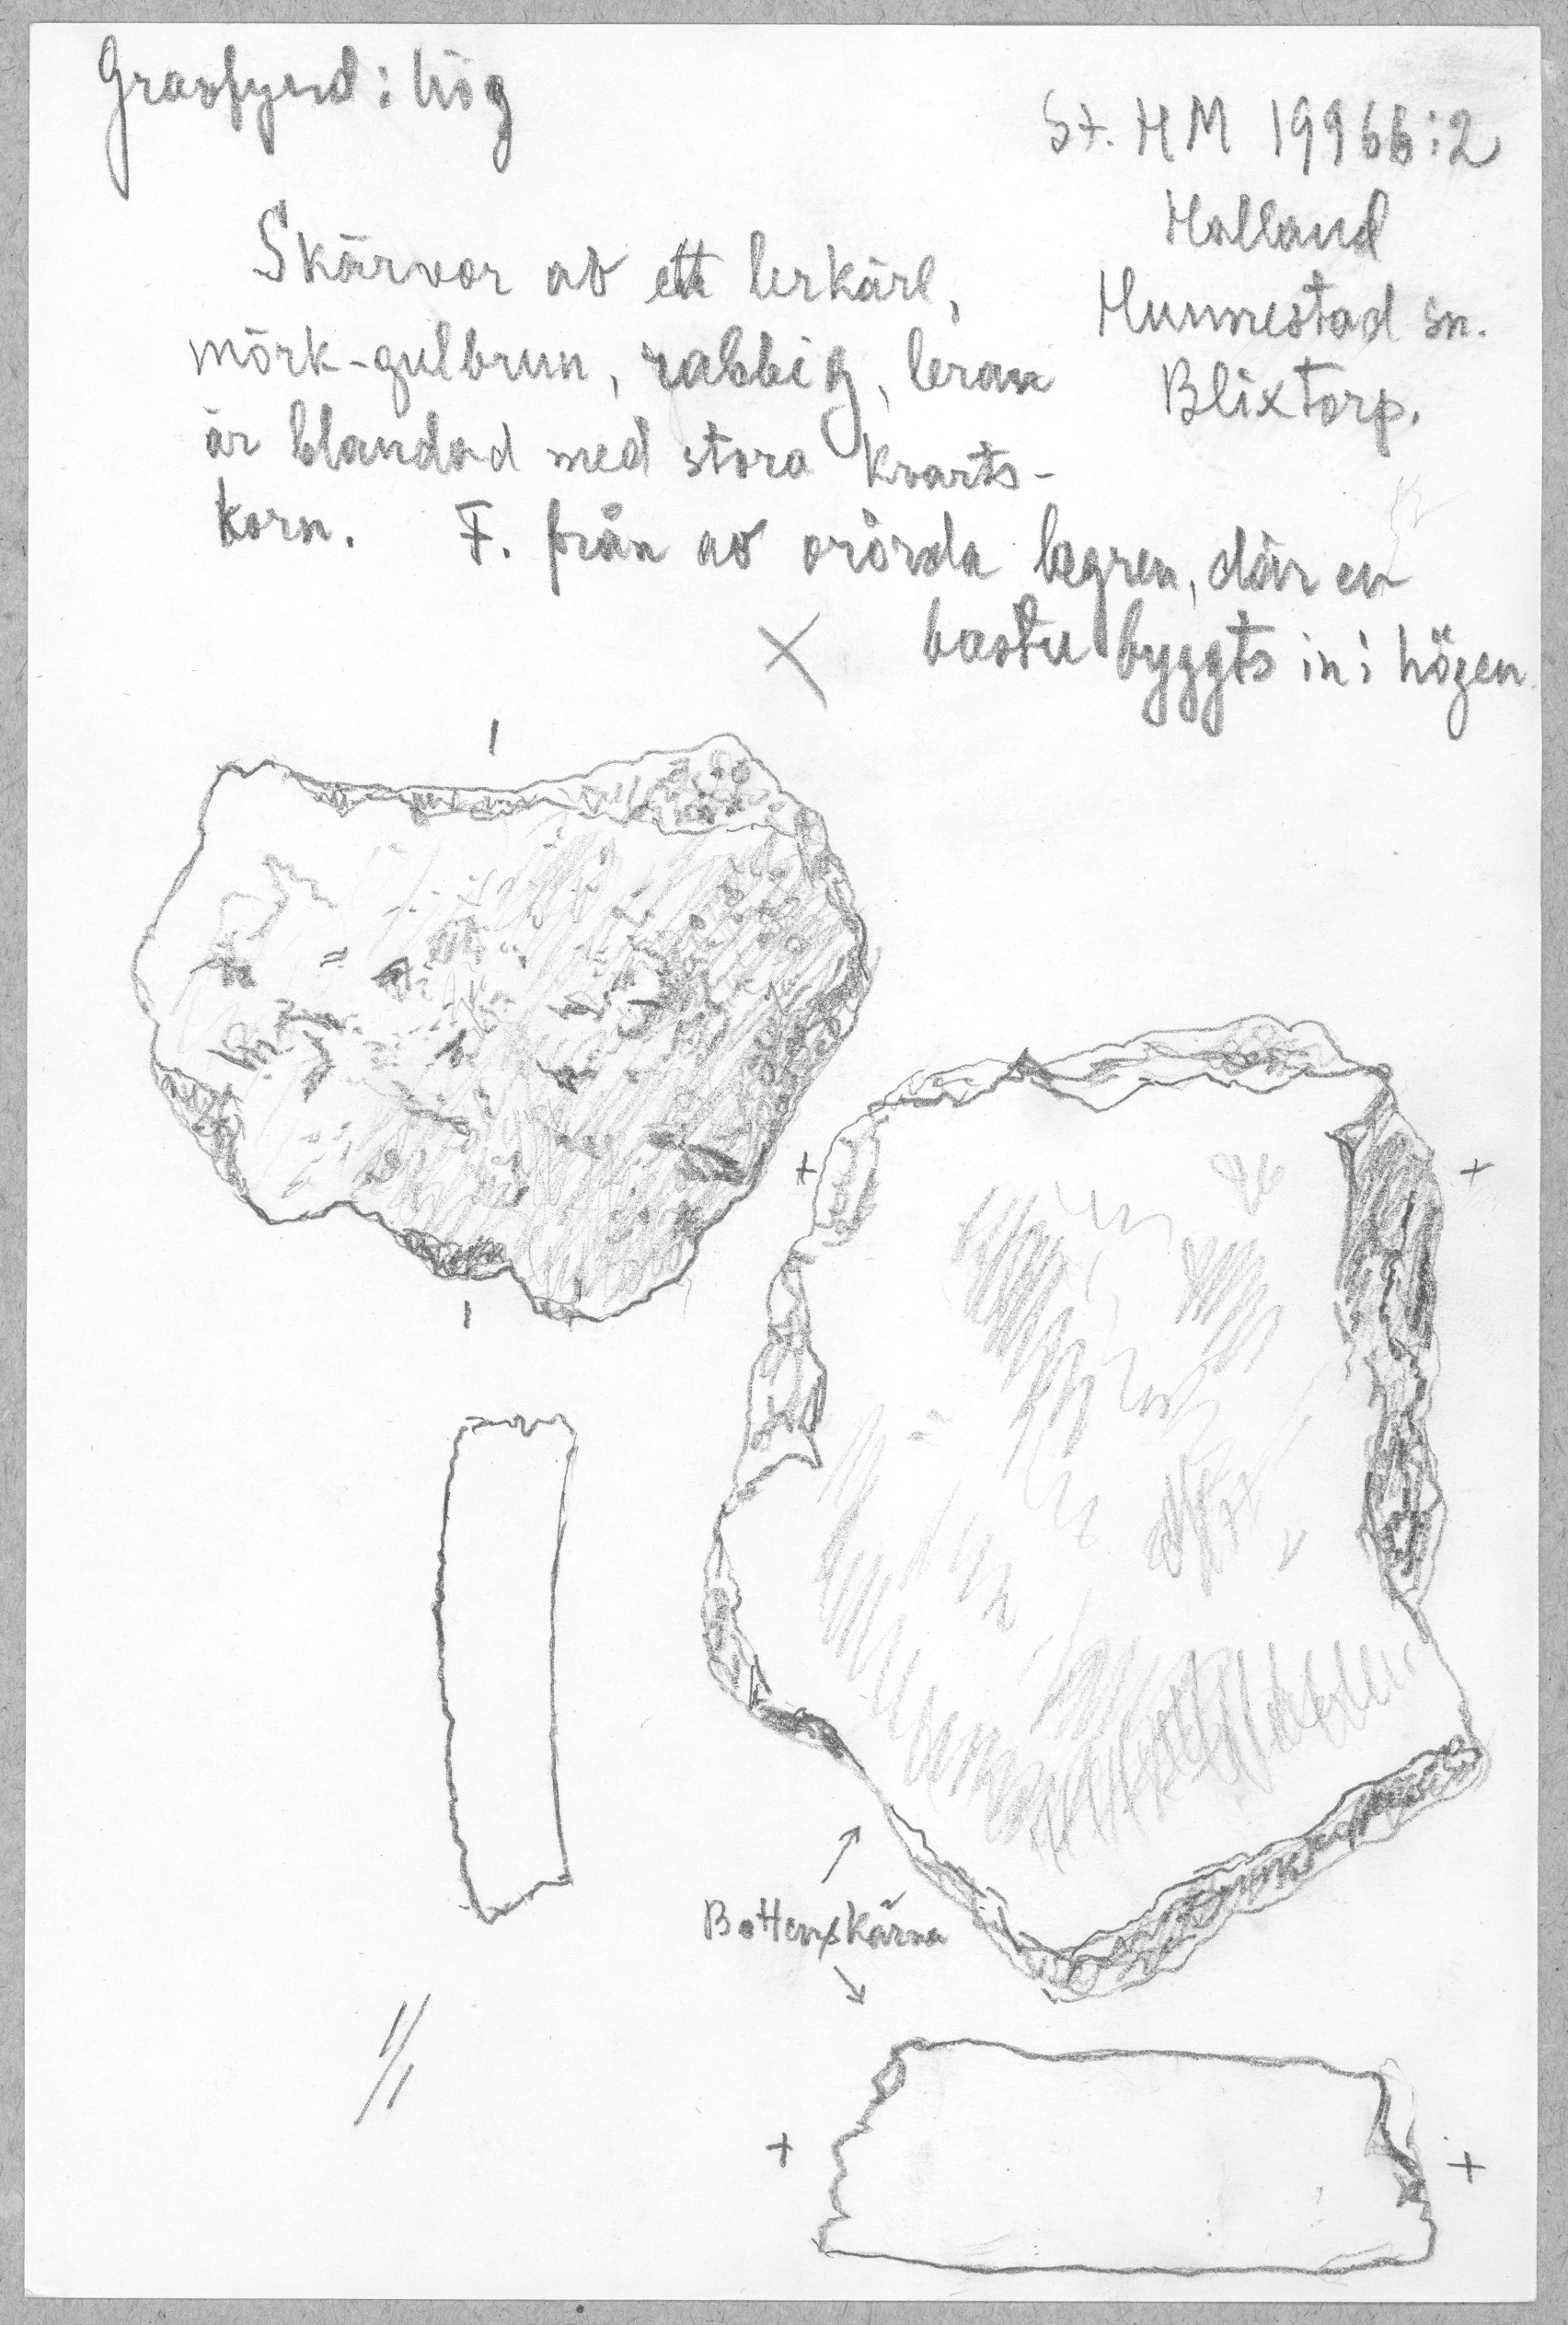 Gravfynd: hög
St. HM 19966:2
Halland
Hunnestad sn.
Blixtorp.
Skärvor av ett lerkärl,
mörk-gulbrun, rabbig, leran
är blandad med stora kvarts-
korn. F. från av orörda lagren, där en
bastu byggts in i högen.
Bottenskärva
1/1